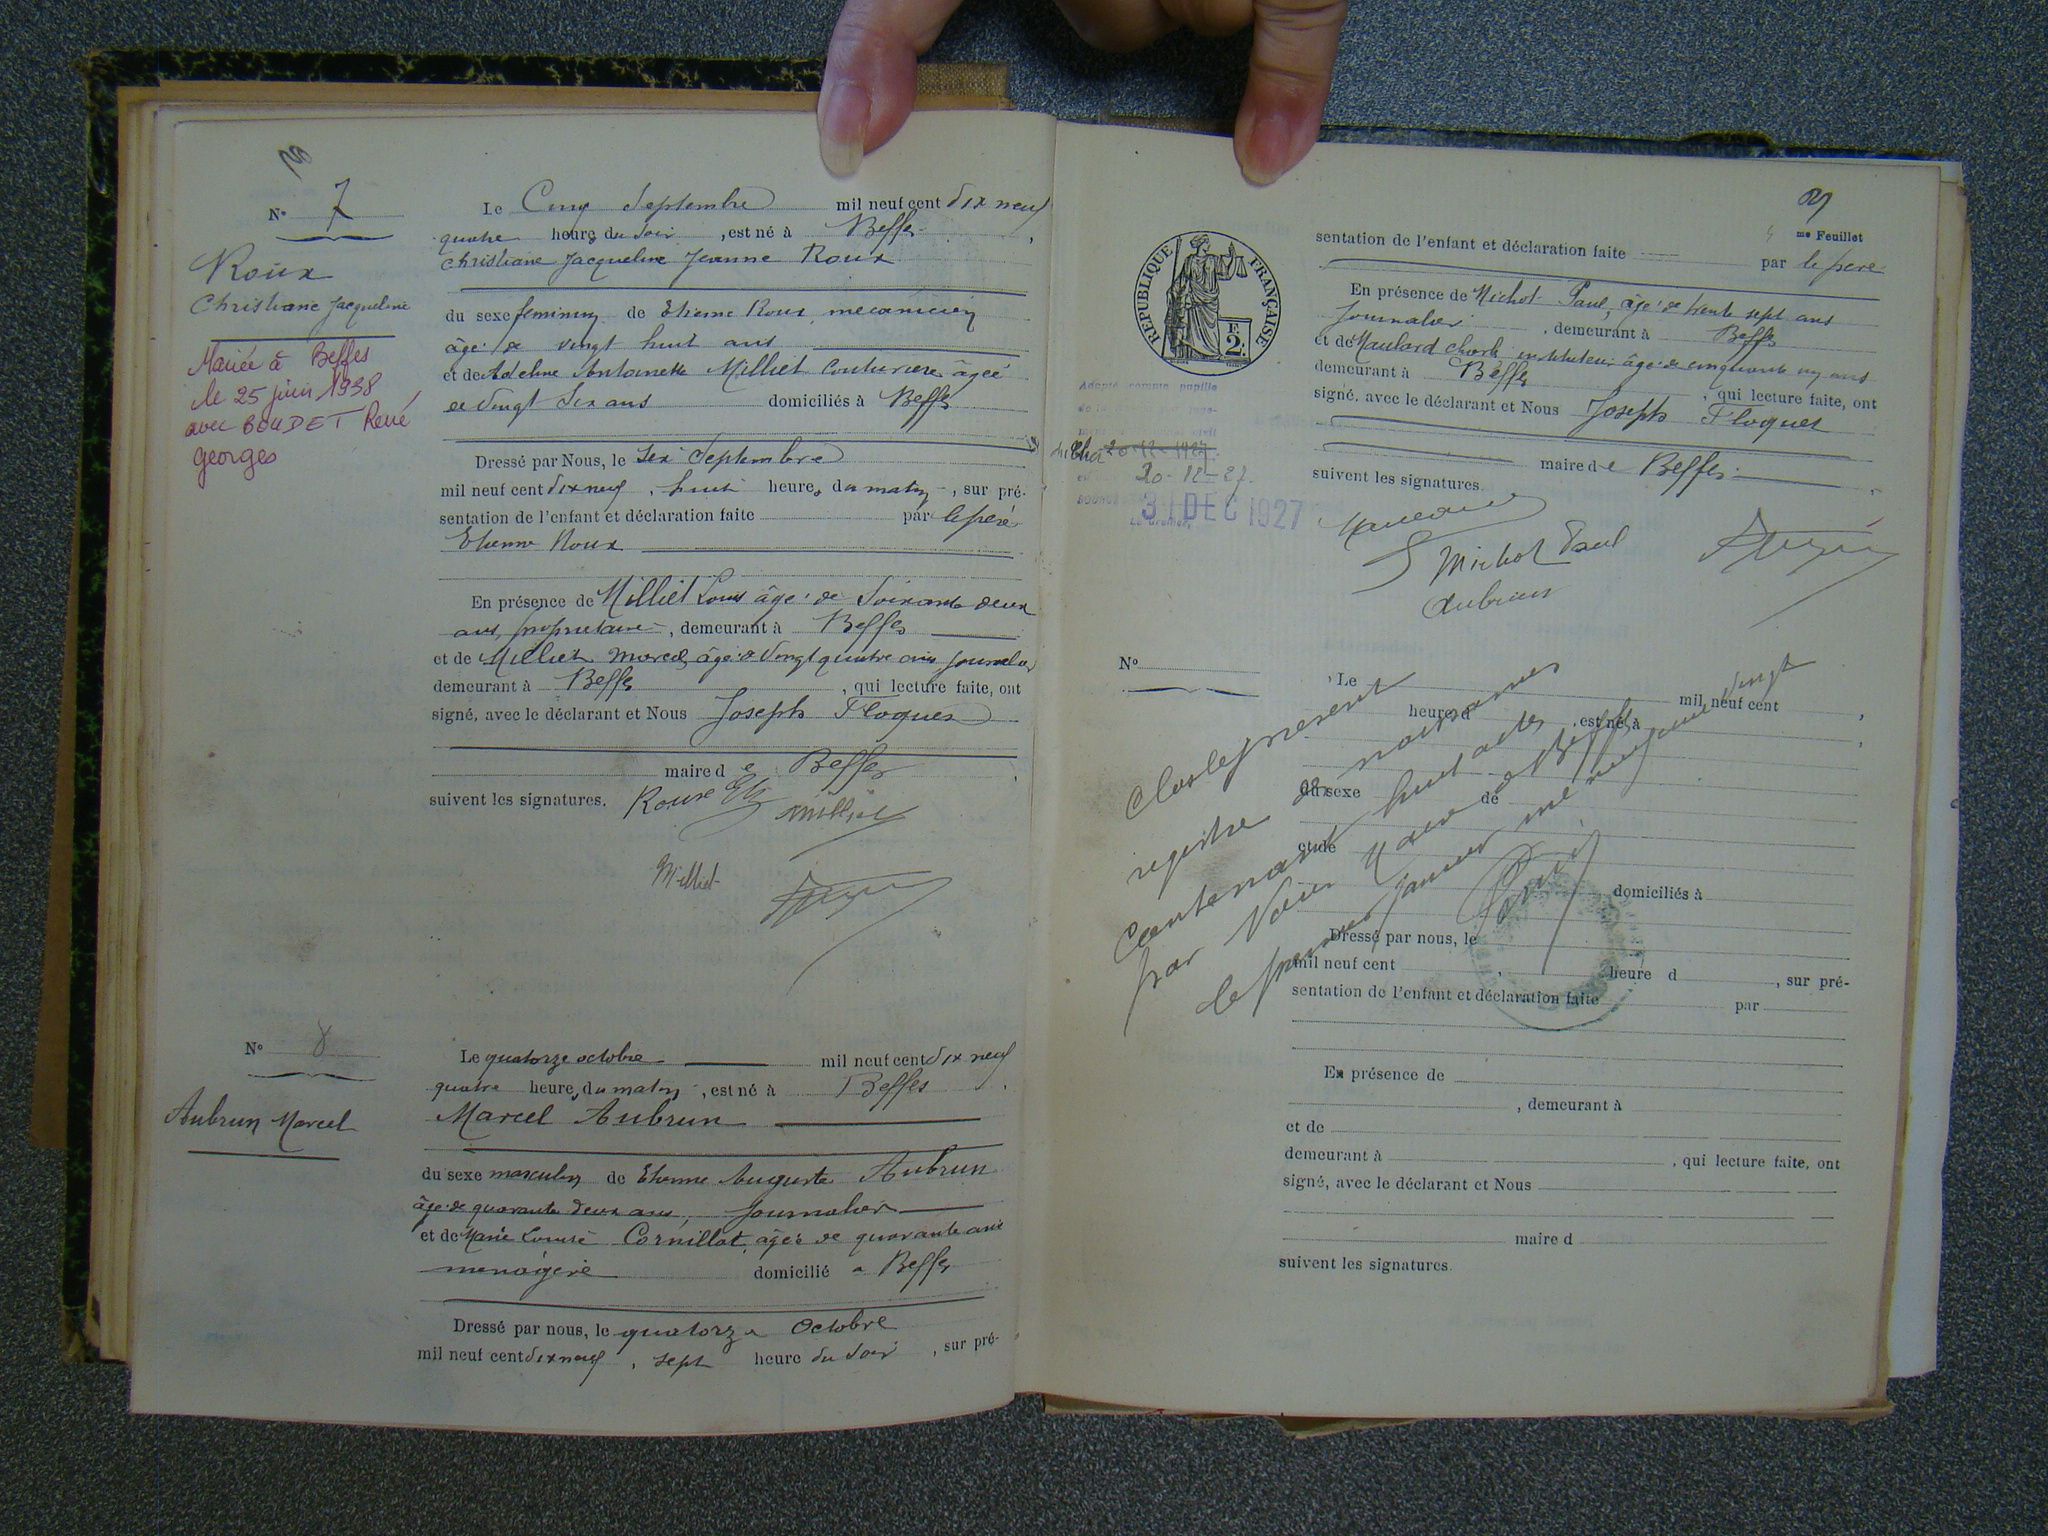 N° 7
Roux
Christiane Jacqueline
Mariée à Beffes
le 25 juin 1938
avec BOUDET René
georges
Le Cinq Septembre mil neuf cent dix neuf
quatre heures du soir, est né à Beffes,
Christiane Jacqueline Jeanne Roux
du sexe feminin de Etienne Roux, mecanicien
âgé de vingt huit ans
et de Adeline Antoinette Milliet Couturiere âgeé
de vingt Six ans domiciliés à Beffes
Dressé par Nous, le Six Septembre
mil neuf cent dix neuf, huit heures du matin, sur pré-
sentation de l'enfant et déclaration faite par le pere
Etienne Roux
En présence de Milliet Louis âgé de Soixante deux
ans, proprietaire, demeurant à Beffes
et de Milliet Marcel, âgé de vingt quatre ans journalier
demeurant à Beffes, qui lecture faite, ont
signé, avec le déclarant et Nous Joseph Floquet
maire de Beffes
suivent les signatures. Roux Milliet
Milliet
N° 8
Aubrun Marcel
Le quatorze octobre mil neuf cent dix neuf
quatre heures du matin, est né à Beffes
Marcel Aubrun
du sexe masculin de Etienne Auguste Aubrun
âgé de quarante deux ans, Journalier
et de Marie Louise Cornillat, âgeé de quarante ans
menagère domicilié a Beffes
Dressé par nous, le quatorze Octobre
mil neuf cent dix neuf, sept heure du Soir, sur pré-
me Feuillet
sentation de l'enfant et déclaration faite par le pere
En présence de Michot Paul, âgé de trente sept ans
Journalier, demeurant à Beffes
et de Maulard Charles instituteur âgé de cinquante un ans
demeurant à Beffes, qui lecture faite, ont
signé, avec le déclarant et Nous Joseph Floquet
maire de Beffes
suivent les signatures.
Michot Paul
Aubrun
RÉPUBLIQUE FRANÇAISE
F.
2.
Adopté comme papille
20-12-1927
20-12-27.
31 DEC 1927
N°
Le mil neuf cent
heure d, est né à
du sexe de
et de
domiciliés à
Dressé par nous, le
mil neuf cent, heure d, sur pré-
sentation de l'enfant et déclaration faite par
En présence de
, demeurant à
et de
demeurant à, qui lecture faite, ont
signé, avec le déclarant et Nous
maire d
suivent les signatures.
Clos le present
registre de naissances
Contenant huit actes
par Nous Maire de Beffes
le premier janvier mil neuf cent vingt